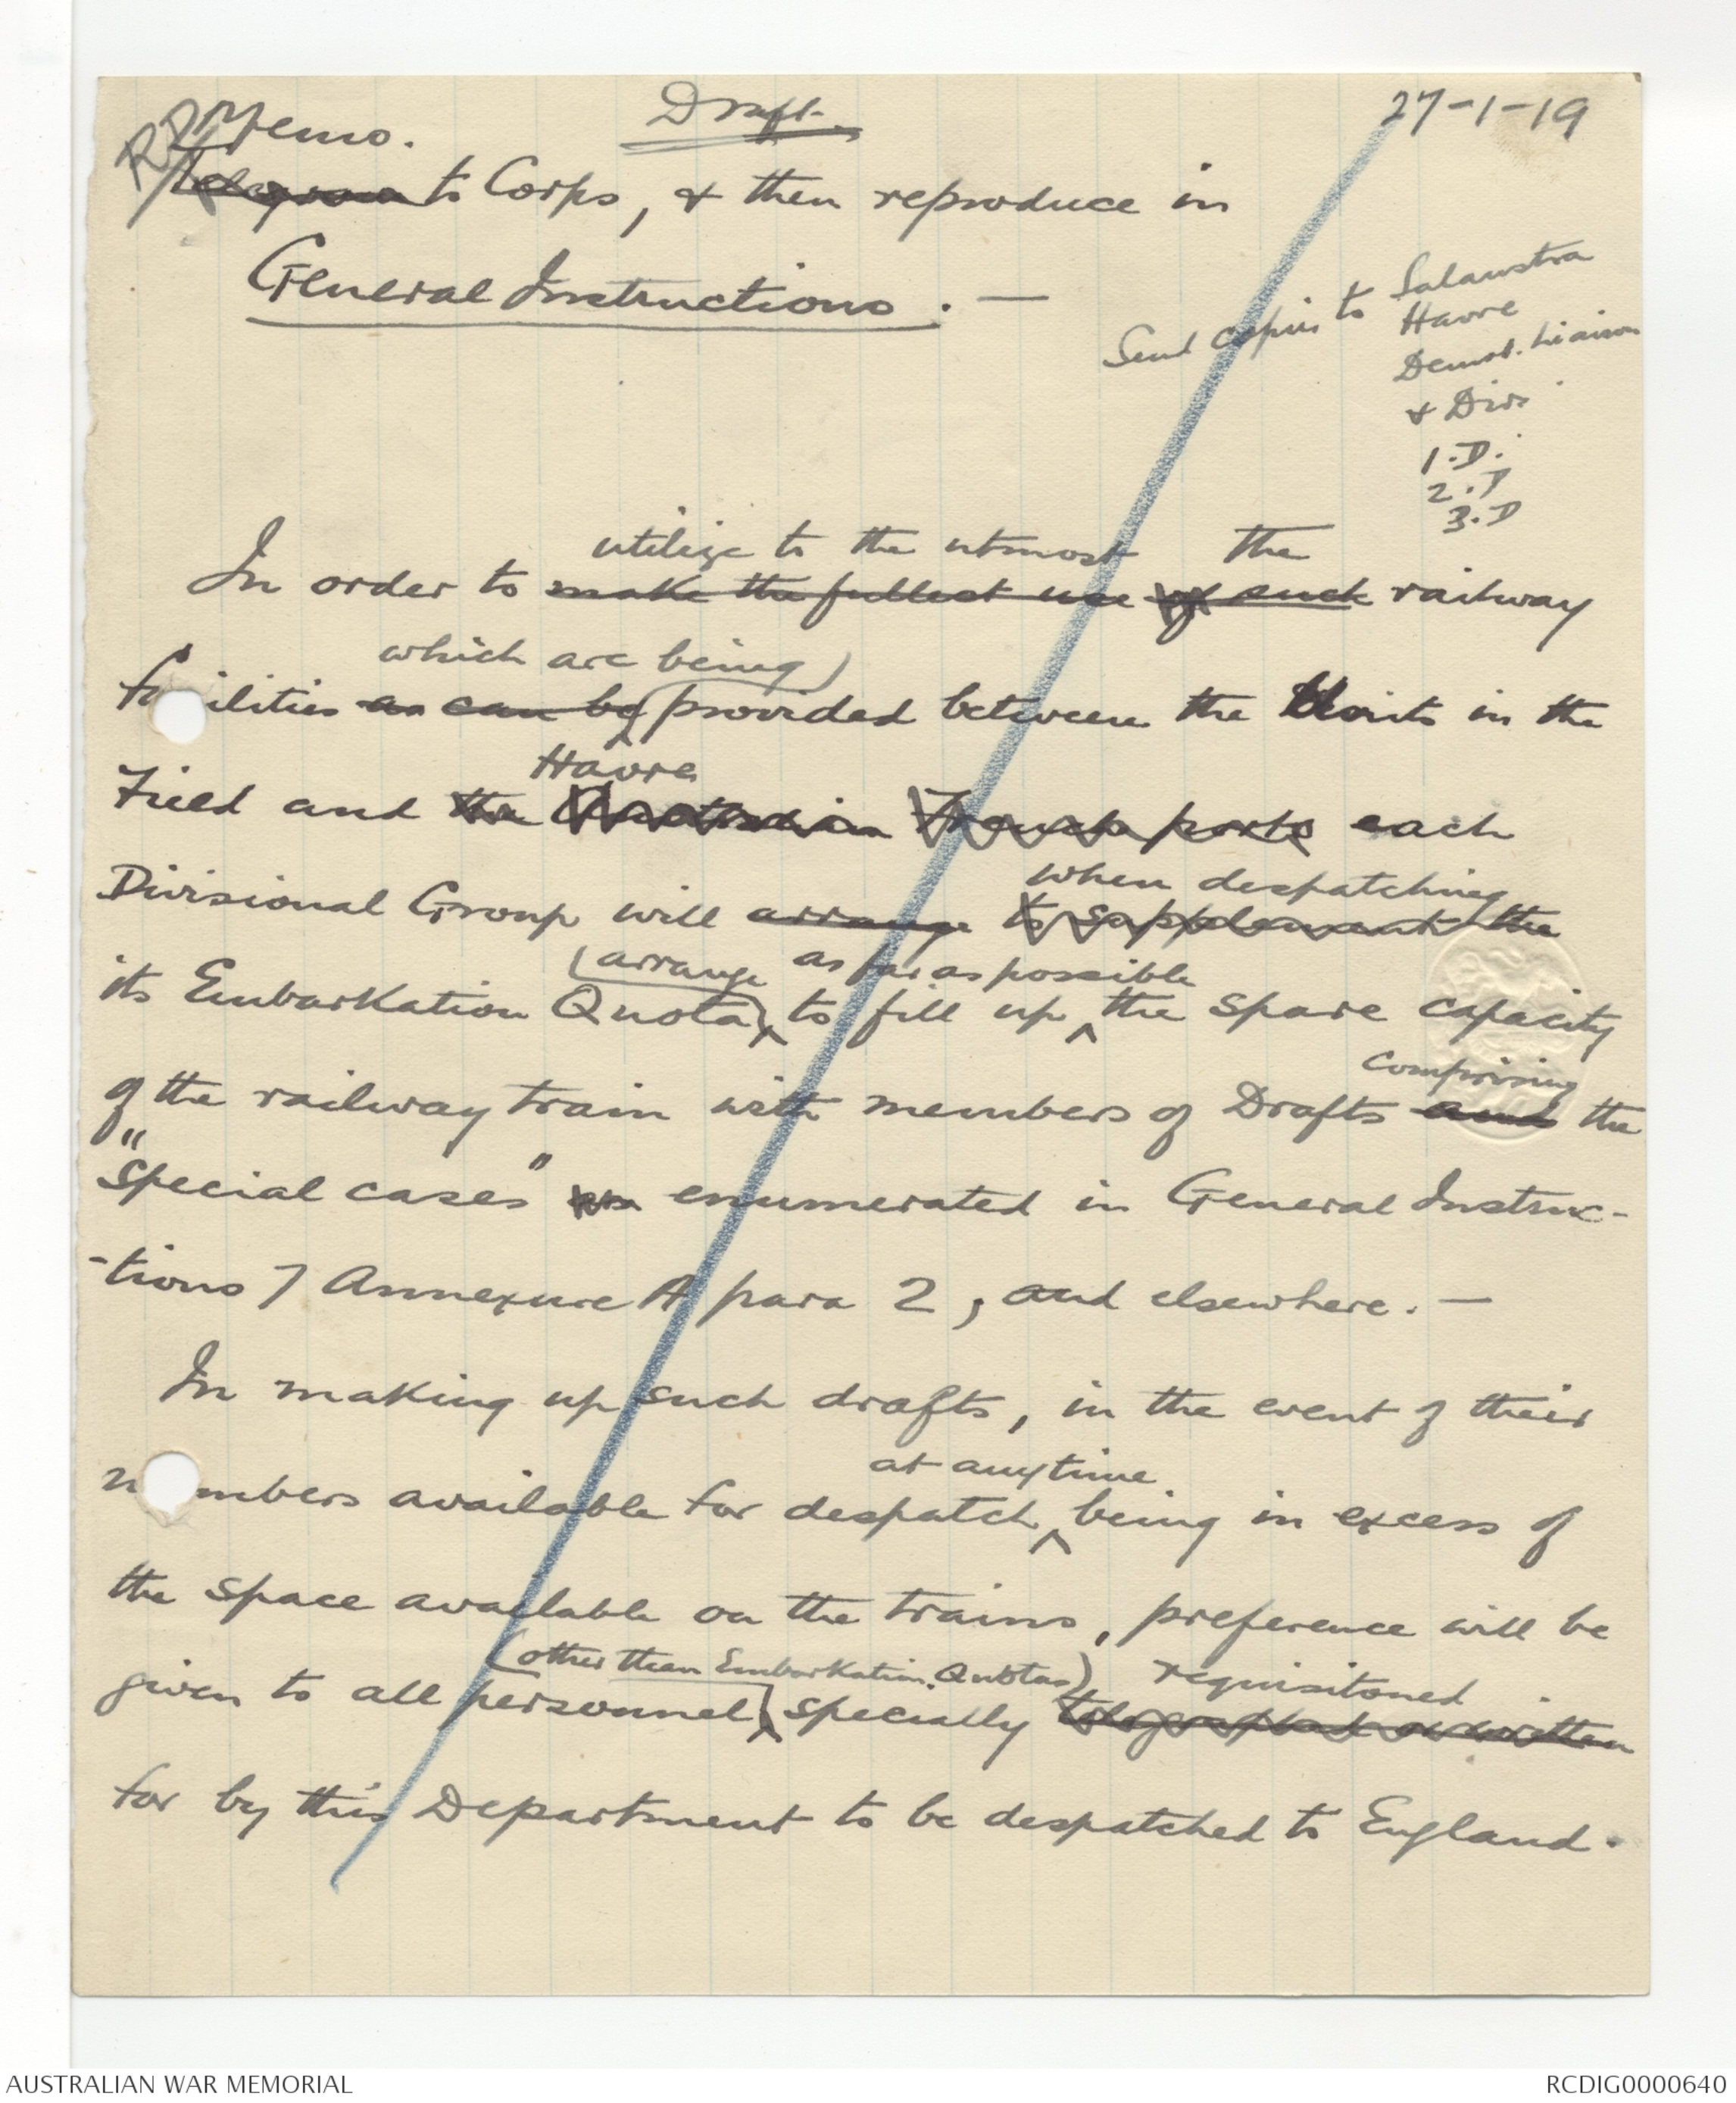 Draft
27-1-19
Memo.
Telegram to Corps, & then reproduce in
General Instructions. —
Send copies to Salaustra
Havre
Demob. Liaison
& Divs
1.D.
2.D
3.D
utilize to the utmost the
In order to make the fullest use of such railway
which are being
facilities as can be provided between the Units in the
Havre
Field and the French ports each
when despatching
Divisional Group will arrange to supplement the
arrange as far as possible
its Embarkation Quota, to fill up the spare capacity
comprising
of the railway train with members of Drafts and the
"Special cases" enumerated in General Instruc-
-tions 7 Annexure A para 2, and elsewhere. —
In making up such drafts, in the event of their
at any time
numbers available for despatch being in excess of
the space available on the trains, preference will be
(other than Embarkation Quotas) requisitoned
given to all personnel specially telegraphed or written
for by this Department to be despatched to England.
AUSTRALIAN WAR MEMORIAL
RCDIG0000640